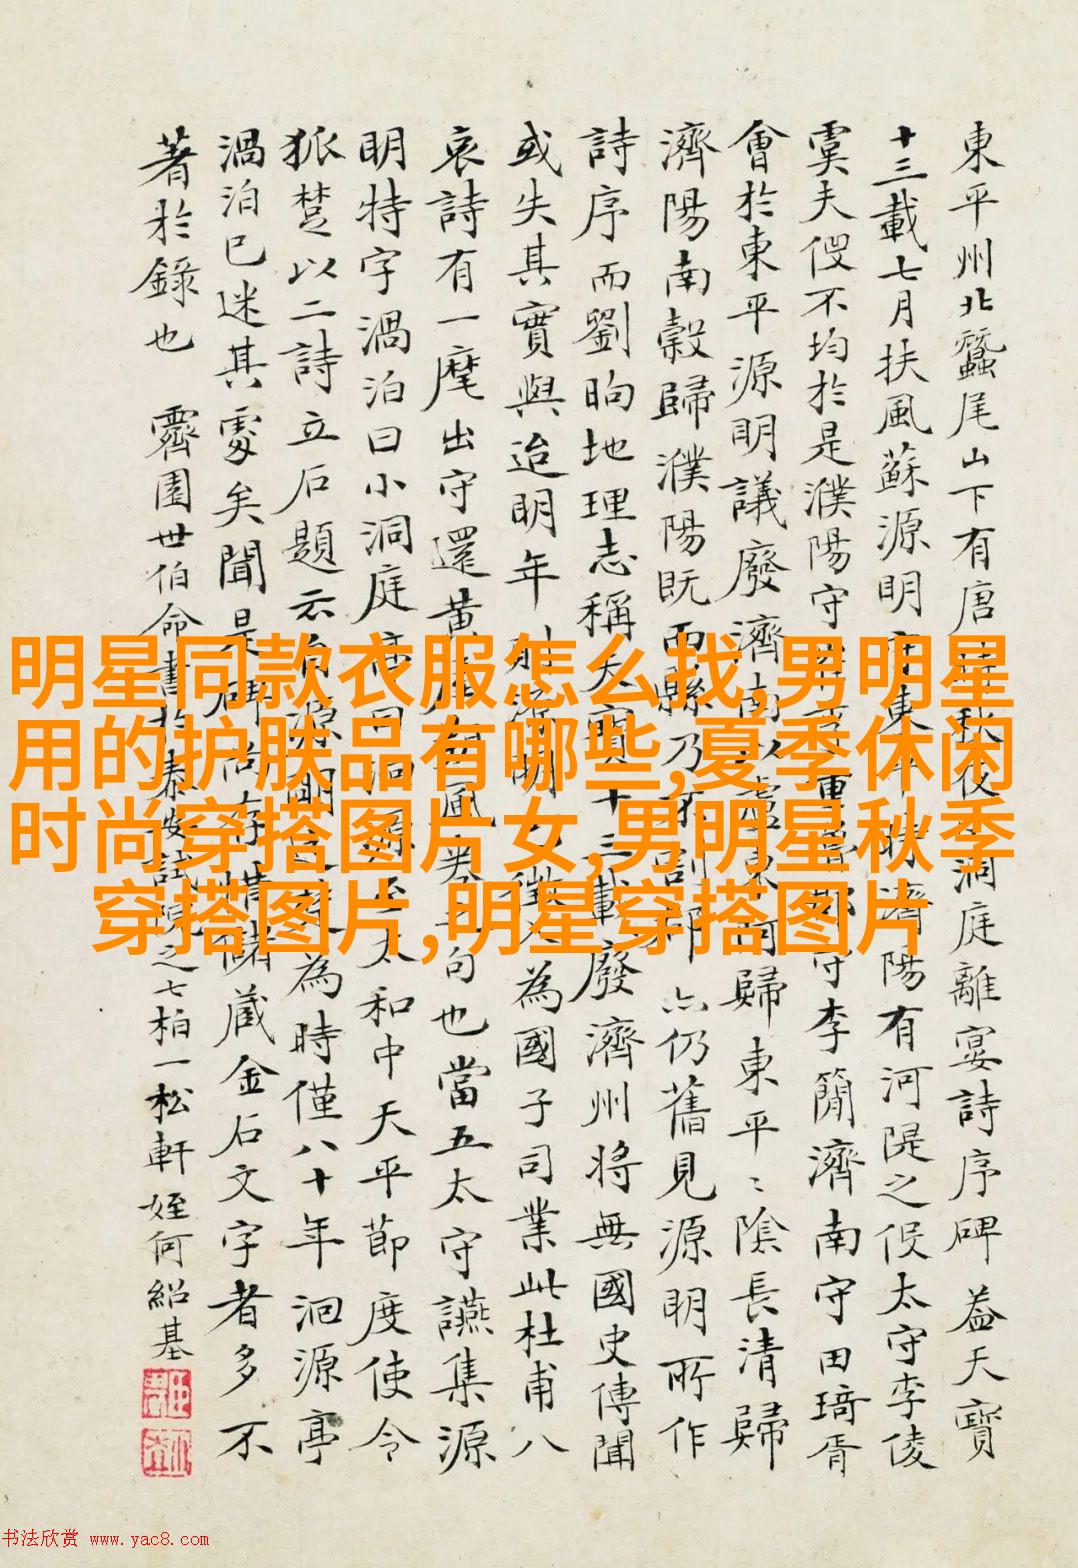 東平州北蠶尾山下有唐秋夜洞庭離宴詩序碑 蓋天寶
十三載七月扶風蘇源明守東平時濟陽有河隄之役太守李倰
虞夫役不均於是濮陽守重守李蘭濟南守田琦胥
會於東平源明議廢濟南以盧東阿歸東平〻陰長清歸
濟陽南穀歸濮陽既而縣乃不割郡亦仍舊見源明所作
詩序而劉昫地理志稱天寶十三載廢濟州將無國史傳聞
或失其實與迨明年則源明徵入為國子司業此杜甫八
哀詩有一麾出守還黃句也當五太守讌集源
明特字濄泊曰小洞庭亭曰洄源太和中天平節度使令
狐楚以二詩立石題云自源明之為時僅八十年洄源亭
濄泊已迷其處矣聞是碑尚存惜儲藏金石文字者多不
著於錄也 霽園世伯命書於泰安試院之七柏一松軒 姪何紹基
明星同款衣服怎么找,男明星
用的护肤品有哪些,夏季休闲
时尚穿搭图片女,男明星秋季
穿搭图片,明星穿搭图片
书法欣赏 www.yac8.com